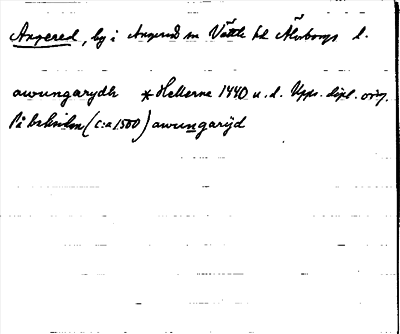 Angered, by i Angered sn Vättle hd Älvborgs l.
awungarydh *Hellerne 1440 u.d. Upps. dipl. orig.
På baksidan (c:a 1500) awungarijd